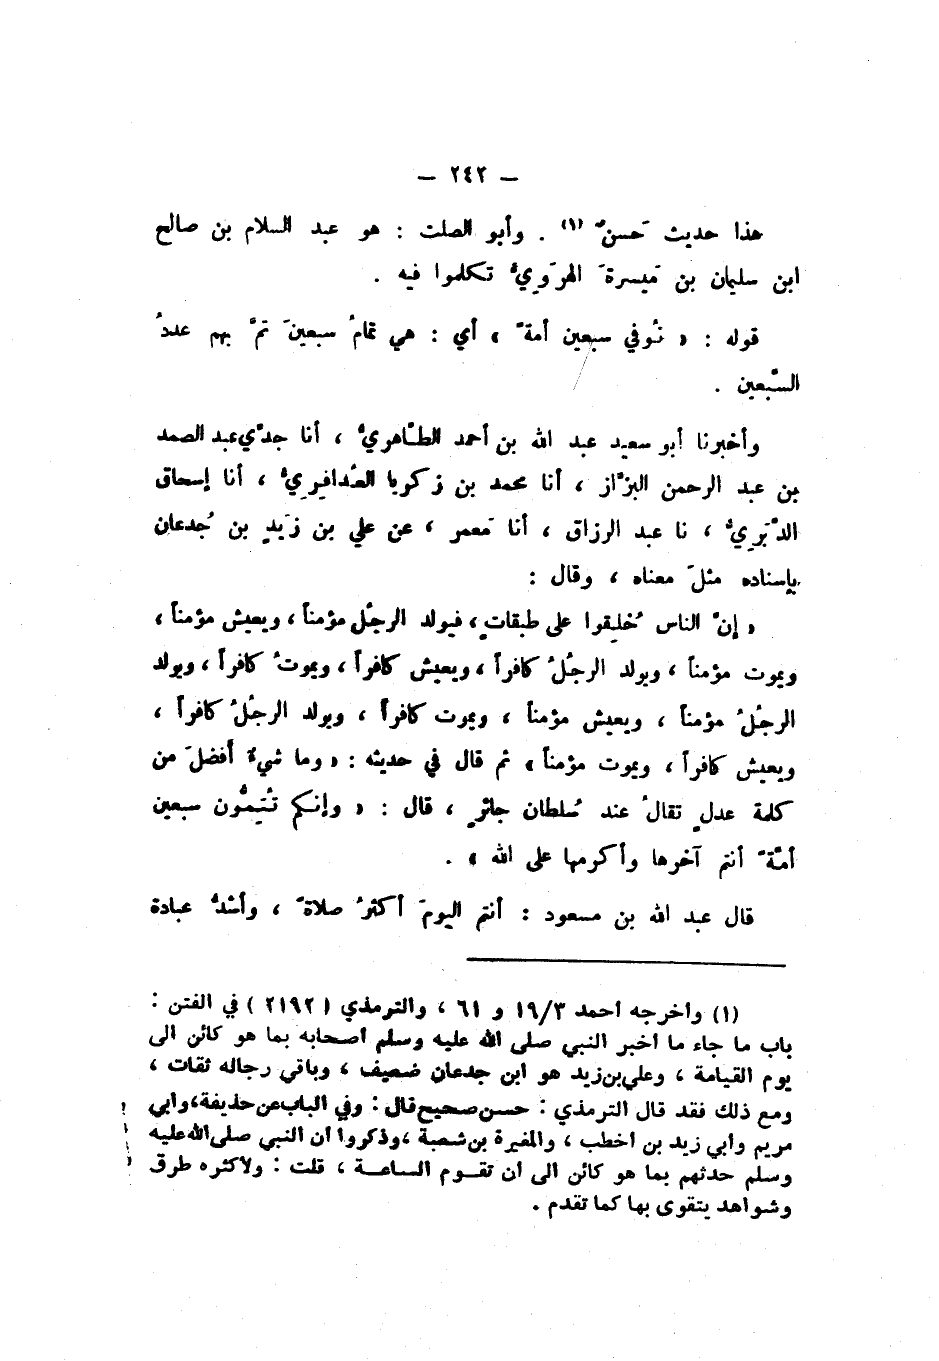 — ٢٤٢ —
هذا حديث حَسنٌ (١) . وأبو الصلت : هو عبد السلام بن صالح
ابن سليمان بن مَيسرةَ الهرَويُّ تكلموا فيه .
قوله : « نُوفي سبعين أمةً » أي : هي تمامُ سبعينَ تمَّ بهم عددُ
السَّبعين .
وأخبرنا أبو سعيد عبد الله بن أحمد الطَّاهريُّ ، أنا جدّي عبد الصمد
بن عبد الرحمن البزَّاز ، أنا محمد بن زكريا العُذافِريُّ ، أنا إسحاق
الدَّبَرِيُّ ، نا عبد الرزاق ، أنا مَعمر ، عن علي بن زَيدِ بن جُدعان
بإسناده مثلَ معناه ، وقال :
« إنَّ الناس خُلِقوا على طبقاتٍ ، فيولد الرجُل مؤمناً ، ويعيش مؤمناً ،
ويموت مؤمناً ، ويولد الرجُلُ كافراً ، ويعيش كافراً ، ويموتُ كافراً ، ويولد
الرجُلُ مؤمناً ، ويعيش مؤمناً ، ويموت كافراً ، ويولد الرجُلُ كافراً ،
ويعيش كافراً ، ويموت مؤمناً » ثم قال في حديثه : « وما شيءٌ أفضلَ من
كلمة عدلٍ تقالُ عند سُلطان جائرٍ ، قال : « وإنكم تُتِمُّون سبعين
أمَّةً أنتم آخرها وأكرمها على الله » .
قال عبد الله بن مسعود : أنتم اليومَ أكثرُ صلاةً ، وأشدُّ عبادة
(١) وأخرجه أحمد ١٩/٣ و ٦١ ، والترمذي ( ٢١٩٢ ) في الفتن :
باب ما جاء ما أخبر النبي صلى الله عليه وسلم أصحابه بما هو كائن الى
يوم القيامة ، وعلي بن زيد هو ابن جدعان ضعيف ، وباقي رجاله ثقات ،
ومع ذلك فقد قال الترمذي : حسن صحيح قال : وفي الباب عن حذيفة ، وأبي
مريم وأبي زيد بن أخطب ، والمغيرة بن شعبة ، وذكروا أن النبي صلى الله عليه
وسلم حدثهم بما هو كائن الى أن تقوم الساعة ، قلت : ولأكثره طرق
وشواهد يتقوى بها كما تقدم .